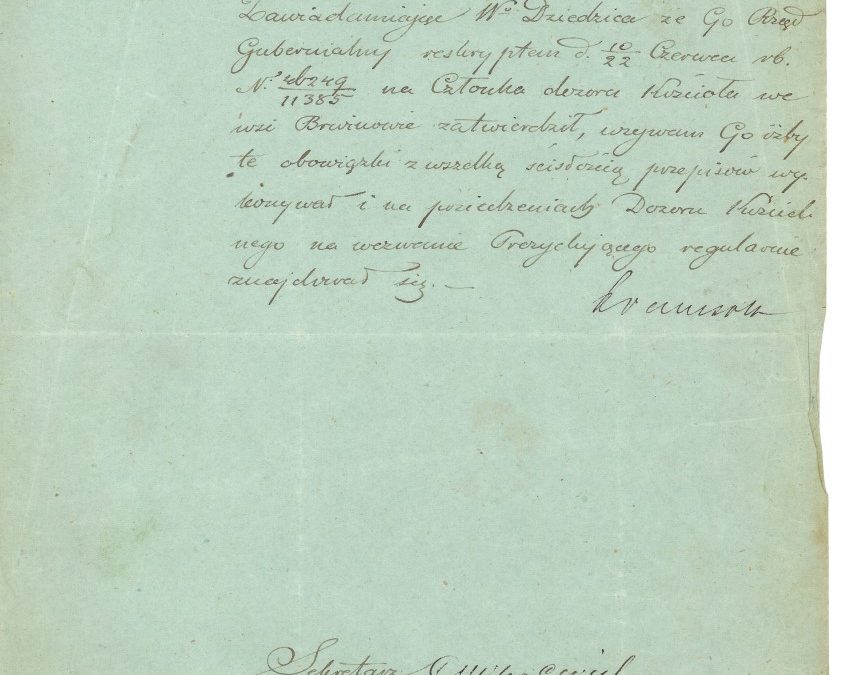 Zawiadamiając Wº Dziedzica że Go Rząd
Gubernialny reskryptem d. 10/22 Czerwca rb.
Nº 46249/11385 na Członka dozoru Kościoła we
wsi Brwinowie zatwierdził, wzywam Go iżby
te obowiązki z wszelką ścisłością przepisów wy-
konywał i na posiedzeniach Dozoru Kościel-
nego na wezwanie Prezydującego regularnie
znajdował się. —
Sekretarz